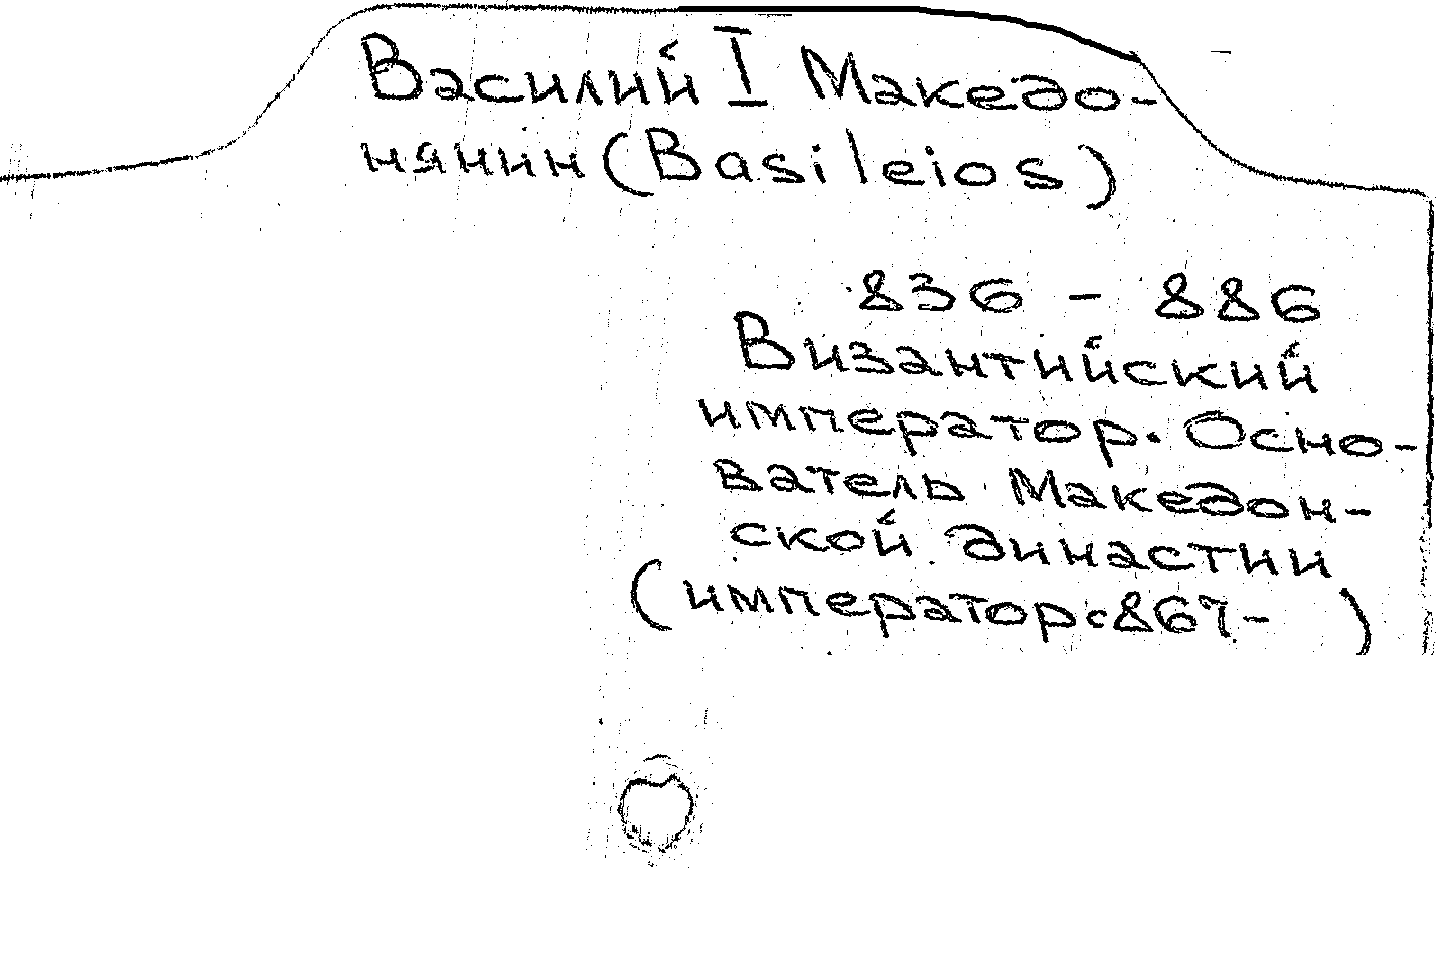 Василий I Македо-
нянин (Basileios)
836 - 886
Византийский
император. Осно-
ватель Македон-
ской династии
(император с 867- )